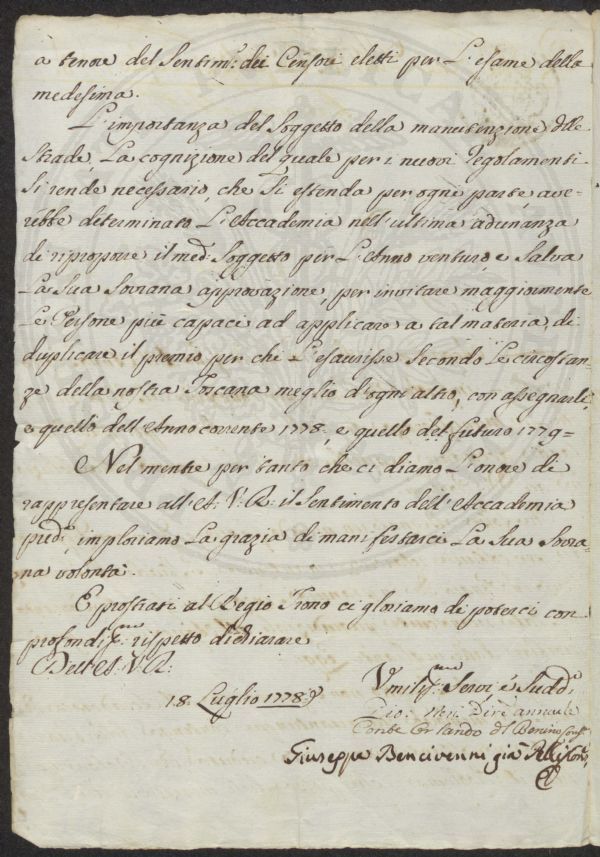 a tenore del Sentim: dei Censori eletti per L'esame della
medesima.
L'importanza del Soggetto della manutenzione delle
Strade, La cognizione del quale per i nuovi regolamenti
Si rende necessario, che Si estenda per ogni parte, ave-
rebbe determinato L'Accademia nell'ultima adunanza
di riproporre il med: Soggetto per L'Anno venturo, e Salva
La Sua Sovrana approvazione, per invitare maggiormente
Le Persone più capaci ad applicare a tal materia, di
duplicare il premio per chi L'esaurisse Secondo Le circostan-
ze della nostra Toscana meglio d'ogni altro, con assegnarli,
e quello dell'Anno corrente 1778, e quello del futuro 1779=
Nel mentre per tanto che ci diamo L'onore di
rappresentare all'A: V: R: il Sentimento dell'Accademia
pred:, imploriamo La grazia di manifestarci La Sua Sovra-
na volontà.
E prostrati al Regio Trono ci gloriamo di poterci con
profondiss:mo rispetto dichiarare
Dell'A: V: R:
18. Luglio 1778.
Umiliss:mi Servi e Sudd:i
Conte Orlando del Benino
Giuseppe Bencivenni già Pelli